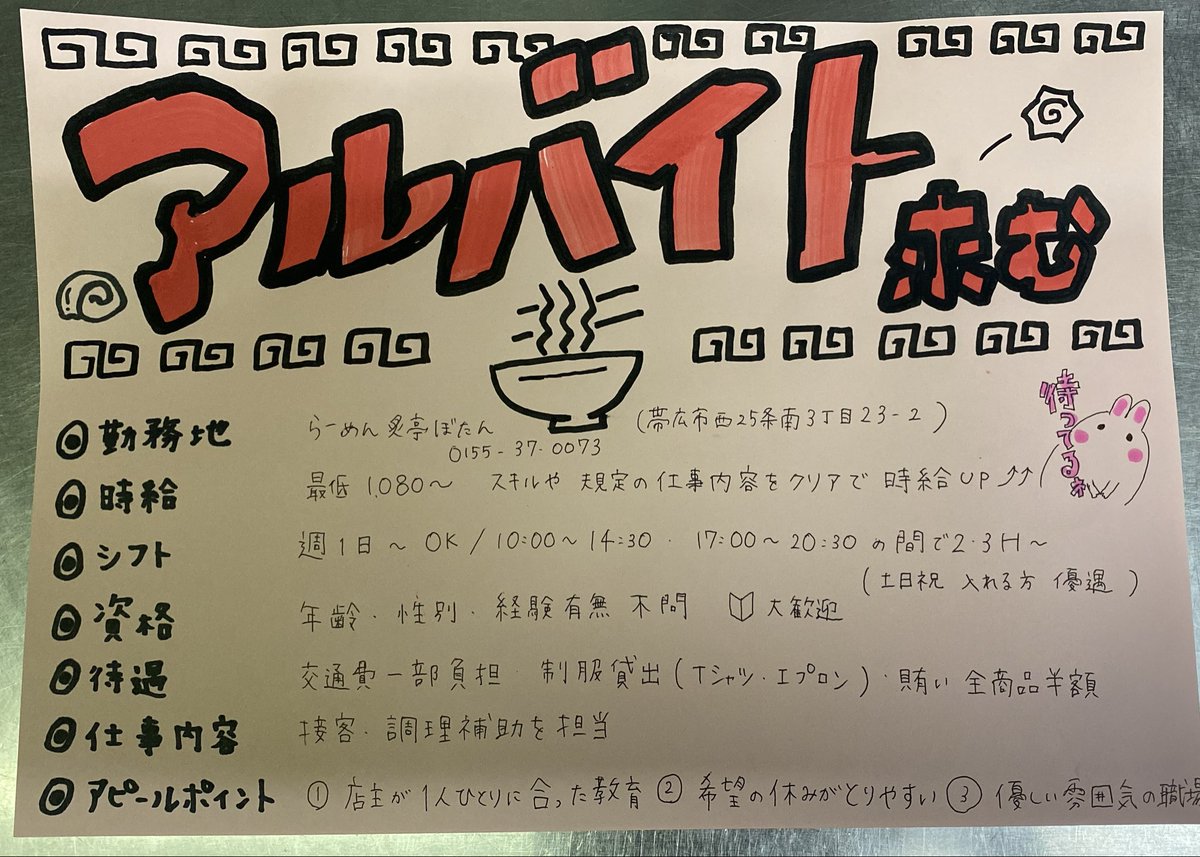 アルバイト求む
待ってるネ
◎勤務地 らーめん 炙亭ぼたん (帯広市西25条南3丁目23-2)
0155-37-0073
◎時給 最低 1,080〜 スキルや 規定の仕事内容をクリアで 時給UP⤴⤴
◎シフト 週1日〜OK/10:00〜14:30・17:00〜20:30の間で2・3H〜
(土日祝 入れる方 優遇)
◎資格 年齢・性別・経験有無 不問 🔰大歓迎
◎待遇 交通費一部負担・制服貸出(Tシャツ・エプロン)・賄い 全商品半額
◎仕事内容 接客・調理補助を担当
◎アピールポイント ①店主が1人ひとりに合った教育 ②希望の休みがとりやすい ③優しい雰囲気の職場